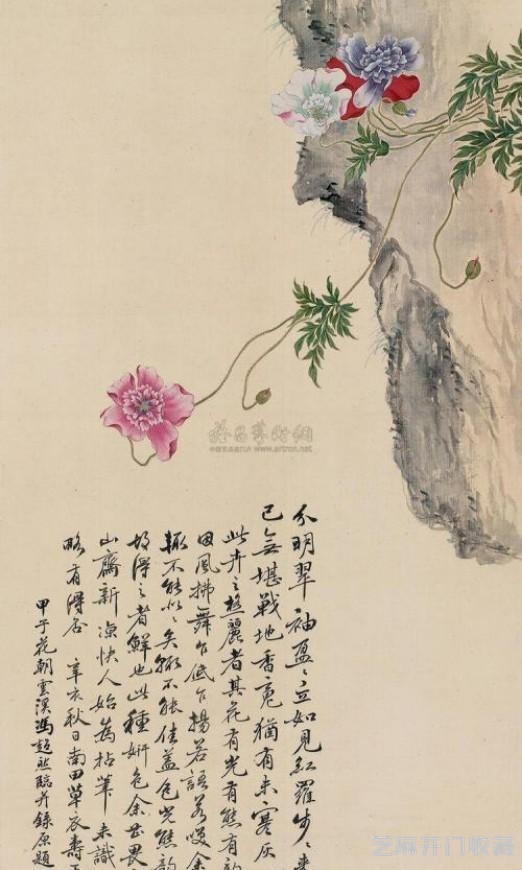 分明翠袖盈〻立如見紅羅步〻
已無堪戰地香猶有未寒灰
此卉之極麗者其花有光有態有韵
因風拂舞乍低乍揚若語若笑余
輒不能似〻矣輒不能佳蓋色光態韵
得之者鮮也此種妍色余甚畏
山齋新涼快人始為拈筆未識
略有得否 辛亥秋日南田草衣壽平
甲子花朝雲溪馮超然臨并錄原題
雅昌藝術網
www.artron.net
芝麻开门收藏